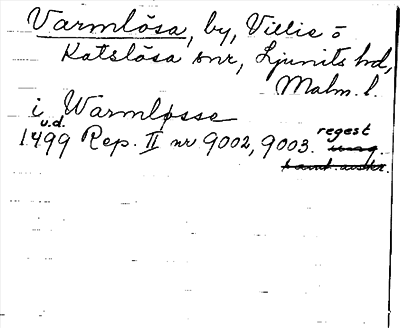 Varmlösa, by, Villie o
Katslösa snr, Ljunits hd,
Malm. l.
i Warmløsse
u.d.
1499 Rep. II nr 9002, 9003. regest